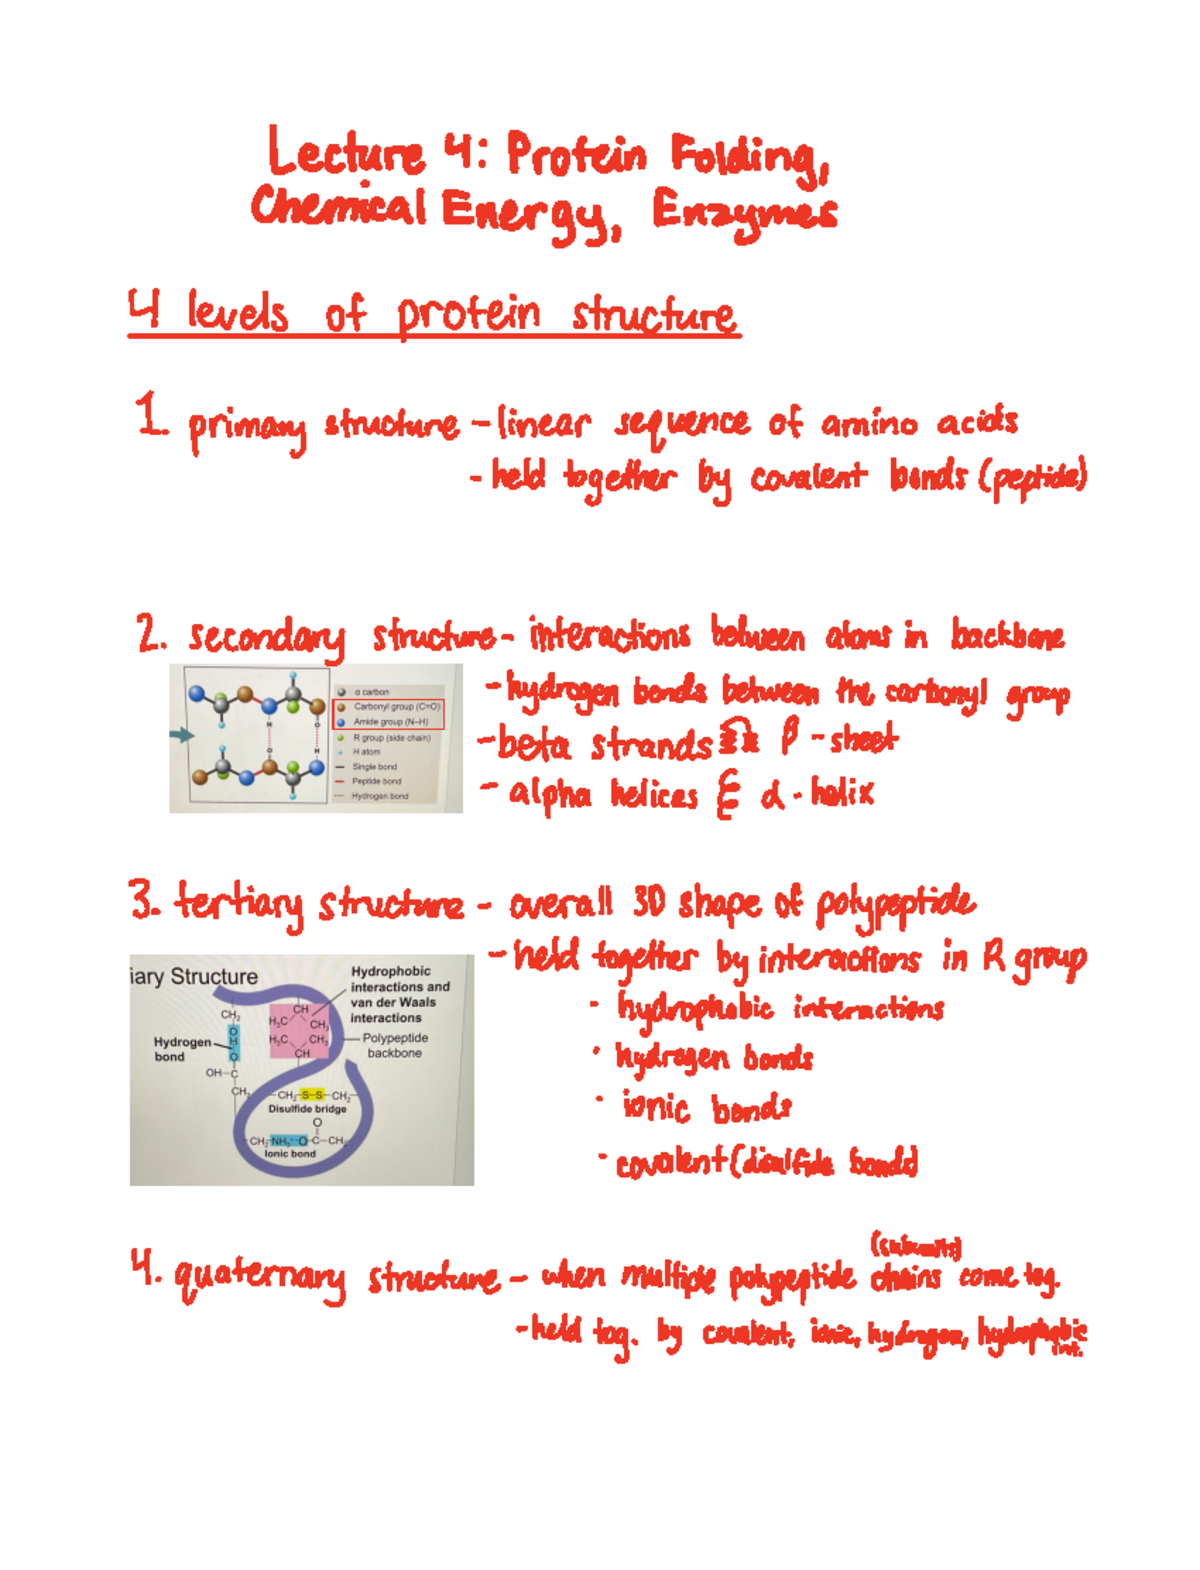 Lecture 4: Protein Folding,
Chemical Energy, Enzymes
4 levels of protein structure
1. primary structure - linear sequence of amino acids
- held together by covalent bonds (peptide)
2. secondary structure - interactions between atoms in backbone
- hydrogen bonds between the carbonyl group
- beta strands β - sheet
- alpha helices α - helix
α carbon
Carbonyl group (C=O)
Amide group (N–H)
R group (side chain)
H atom
Single bond
Peptide bond
Hydrogen bond
H
O
O
H
3. tertiary structure - overall 3D shape of polypeptide
- held together by interactions in R group
· hydrophobic interactions
· hydrogen bonds
· ionic bonds
· covalent (disulfide bonds)
iary Structure
Hydrophobic
interactions and
van der Waals
interactions
Polypeptide
backbone
Hydrogen
bond
CH₂
O
H
O
OH–C
CH₂
CH
H₃C CH₃
H₃C CH₃
CH
CH₂–S–S–CH₂
Disulfide bridge
O
CH₂–NH₃⁺ ⁻O–C–CH₂
Ionic bond
(subunits)
4. quaternary structure - when multiple polypeptide chains come tog.
- held tog. by covalent, ionic, hydrogen, hydrophobic
int.